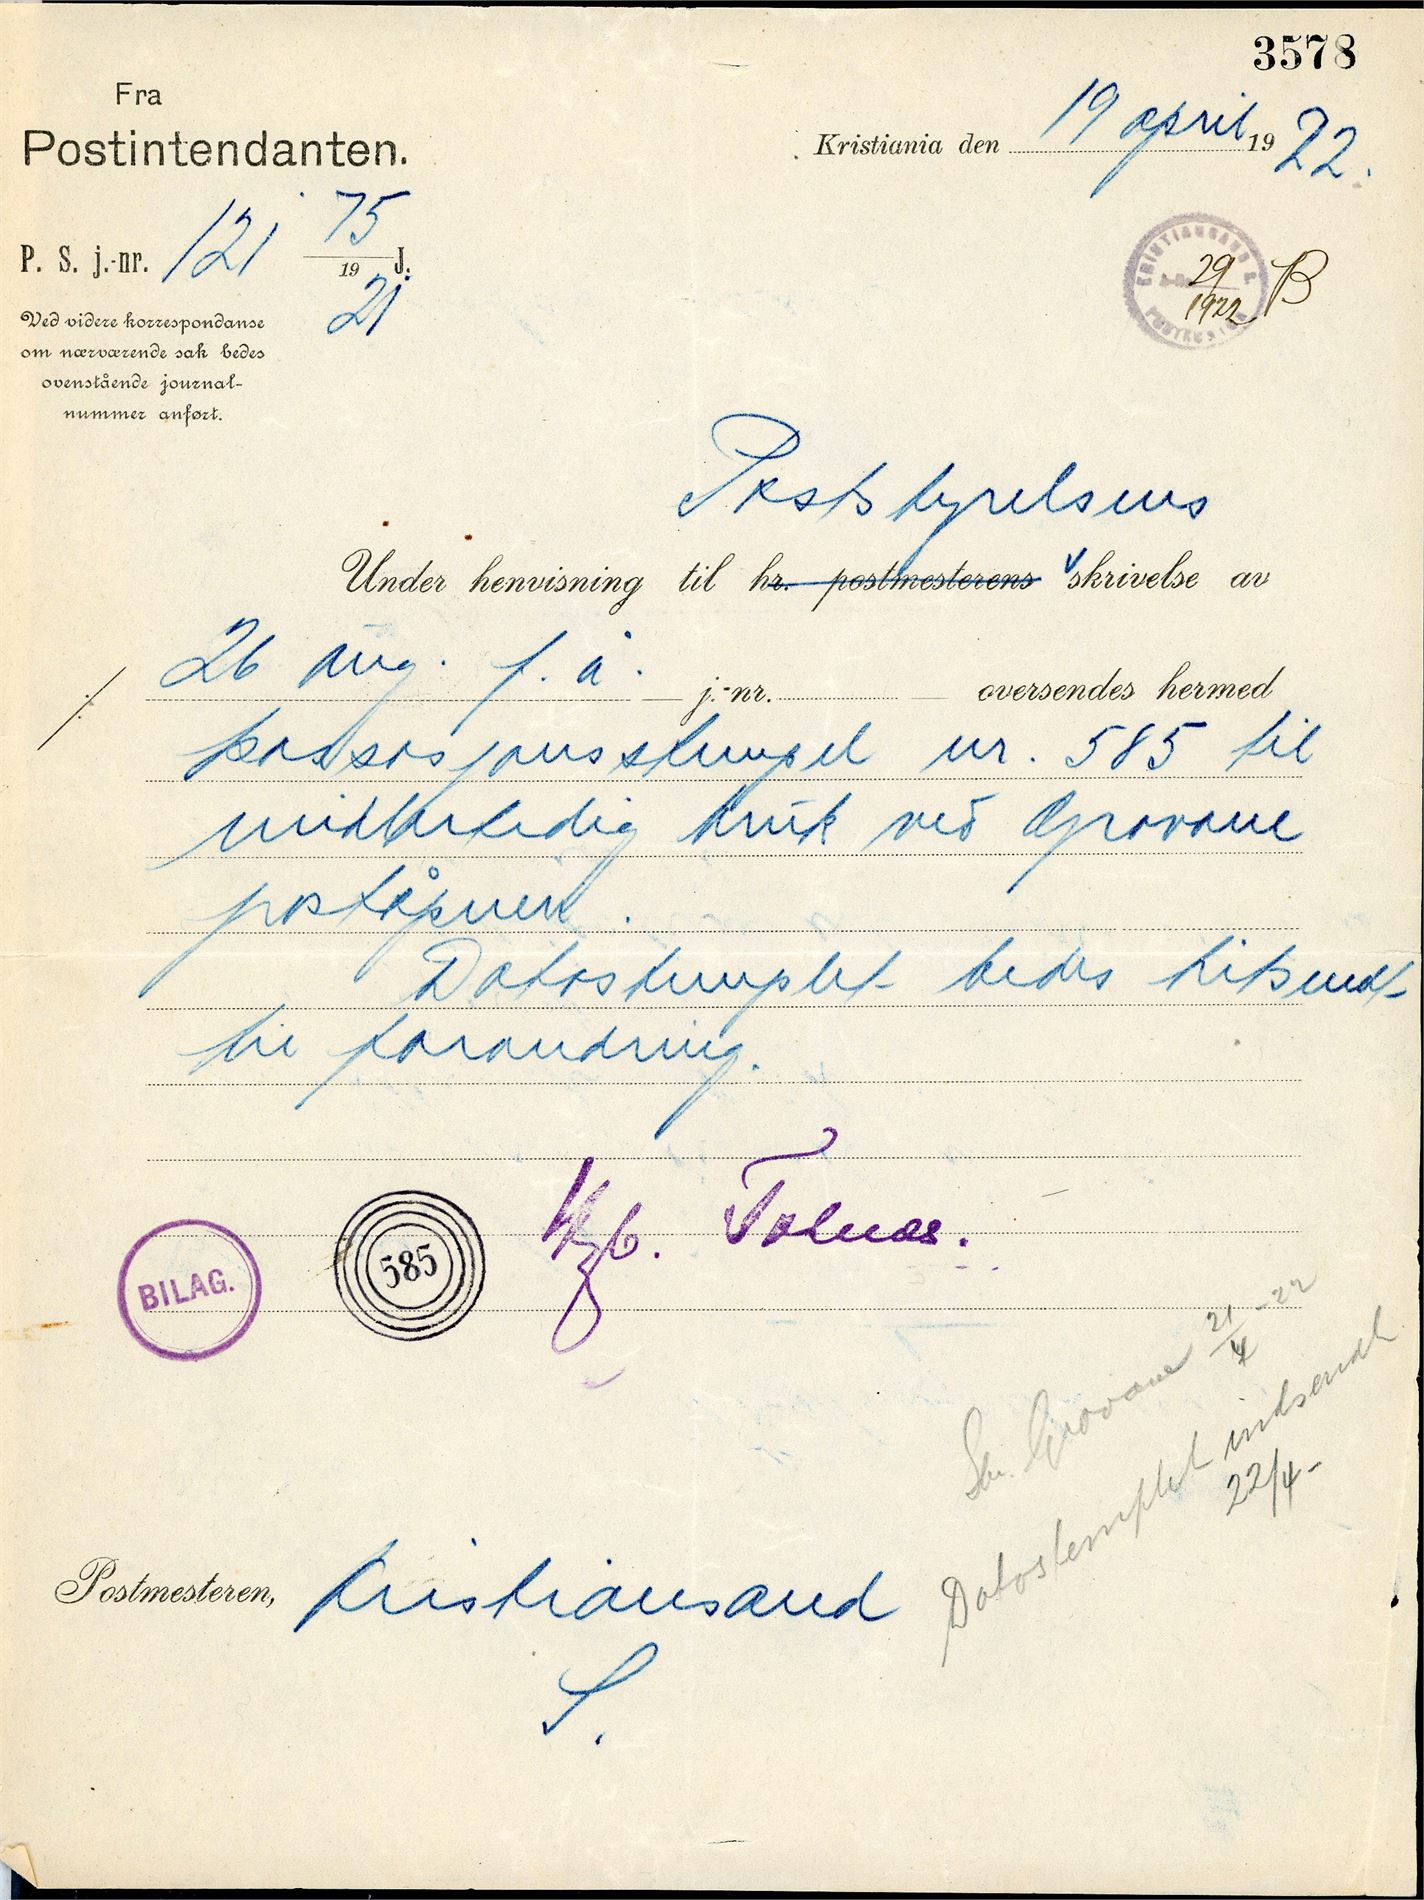 3578
Fra
Postintendanten.
Kristiania den 19 april 19 22.
P. S. j.-nr. 121 75 J.
19 21
Ved videre korrespondanse
om nærværende sak bedes
ovenstående journal-
nummer anført.
KRISTIANSAND S.
29
1922 B
Poststyrelsens
Under henvisning til hr. postmesterens skrivelse av
26 aug. f. å. j.-nr. oversendes hermed
kassasjonsstempel nr. 585 til
midlertidig bruk ved Grovane
poståpneri.
Datostemplet bedes hitsendt
til forandring.
Tolnæs.
BILAG.
585
Grovane 21/4 -22
Datostemplet indsendt
22/4-
Postmesteren, Kristiansand
S.